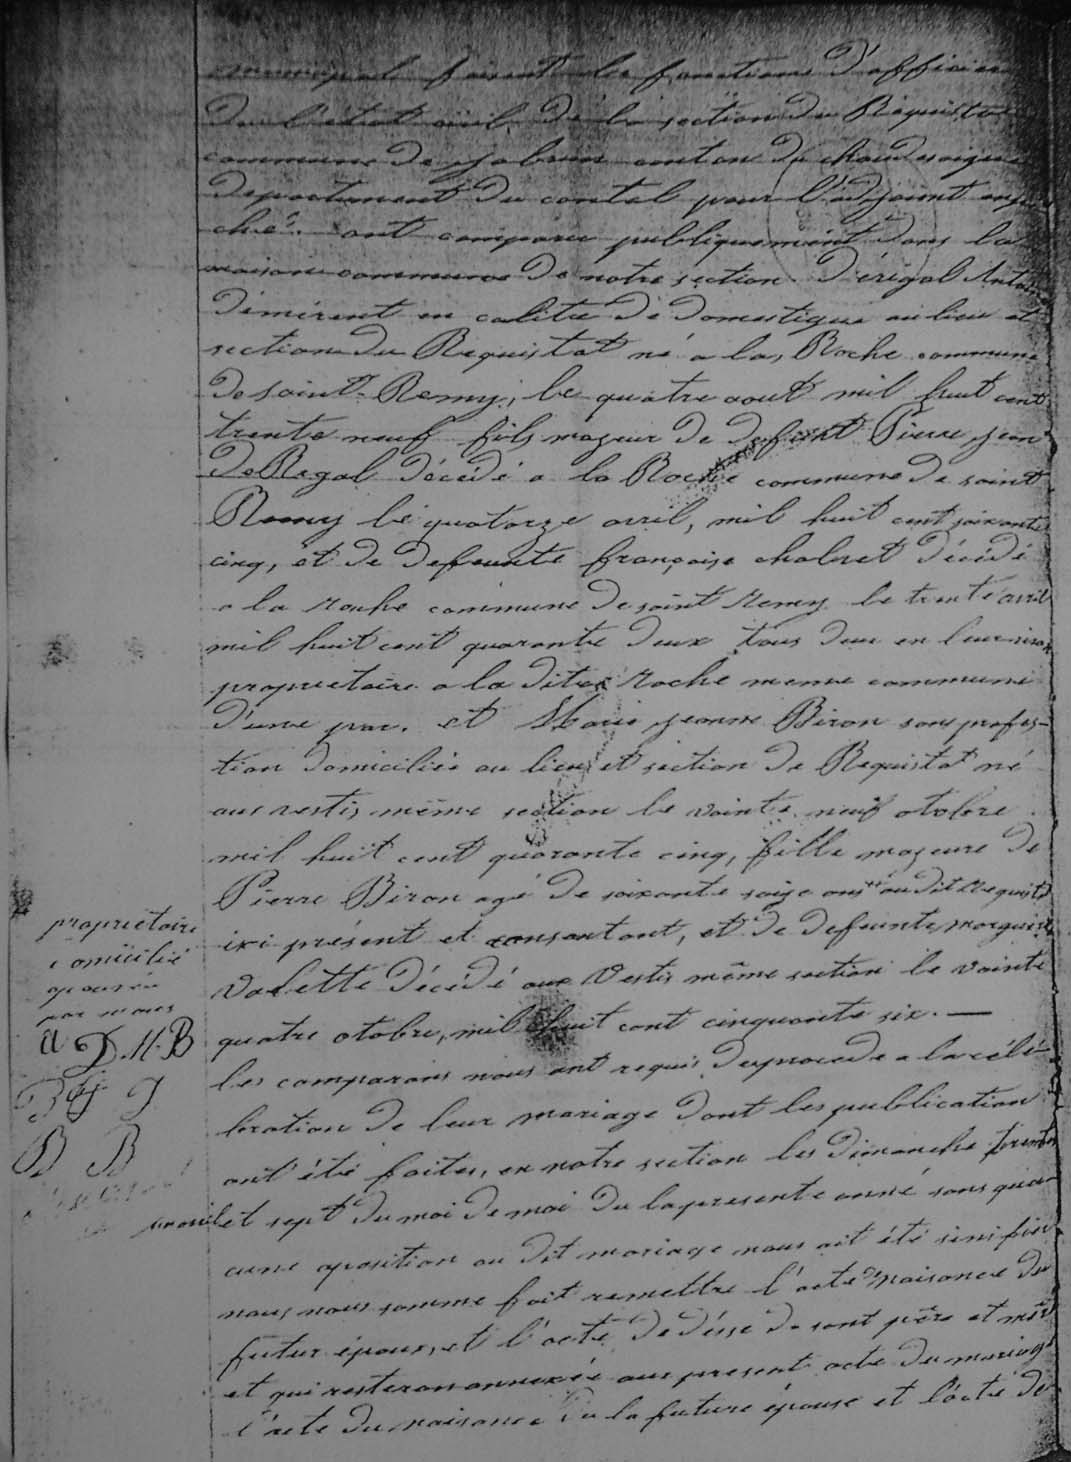 municipal faisent les fonctions d'officier
de l'état civil de la section du Réquistat
commune de Jabrun canton de chaudesaigues
departement du cantal pour l'adjoint empe
ché. ont comparu publiquement dans la
maison commune de notre section Dérégal Antoine
démirent en calité de domestique au lieu et
section du Requistat né a la Roche commune
de saint-Remy, le quatre aout mil huit cent
trente neuf fils majeur de defunt Pierre Jean
DeRegal décédé a la Roche commune de saint
Remy le quatorze avril, mil huit cent soixante
cinq, et de defeunte françoise chalvet décédé
a la roche commune de saint remy le trente avril
mil huit cent quarante deux tous deux en leur vivan
proprietaire a la dite roche meme commune
d'une par. et Marie jeanne Biron sans profes-
tion domiciliée au lieu et section de Requistat né
aux vestis même section le vainte neuf otobre
mil huit cent quarante cinq, fille majeure de
Pierre Biron agé de soixante saize ans au dit Requistat
ici présent et consantant, et de defeunte marguerite
Valette décédé aux Vestis même section le vainte
quatre otobre, mil huit cent cinquante six. —
les comparans nous ont requis de procede a la célé-
bration de leur mariage dont les publication
ont été faites, en notre section les dimanche trente
et sept du moi de mai de la presente anné sans qu'au
cune oposition au dit mariage nous ait été sinifiée
nous nous somme fait remettre l'acte de naisance du
futur époux, et l'acte de désse de sont père et mère
et qui resteron annexée aux present acte de mariage
l'acte de naisance de la future épouse et l'acte de
propriétaire
domicilié
par nous
A D. M. B
B J
B B